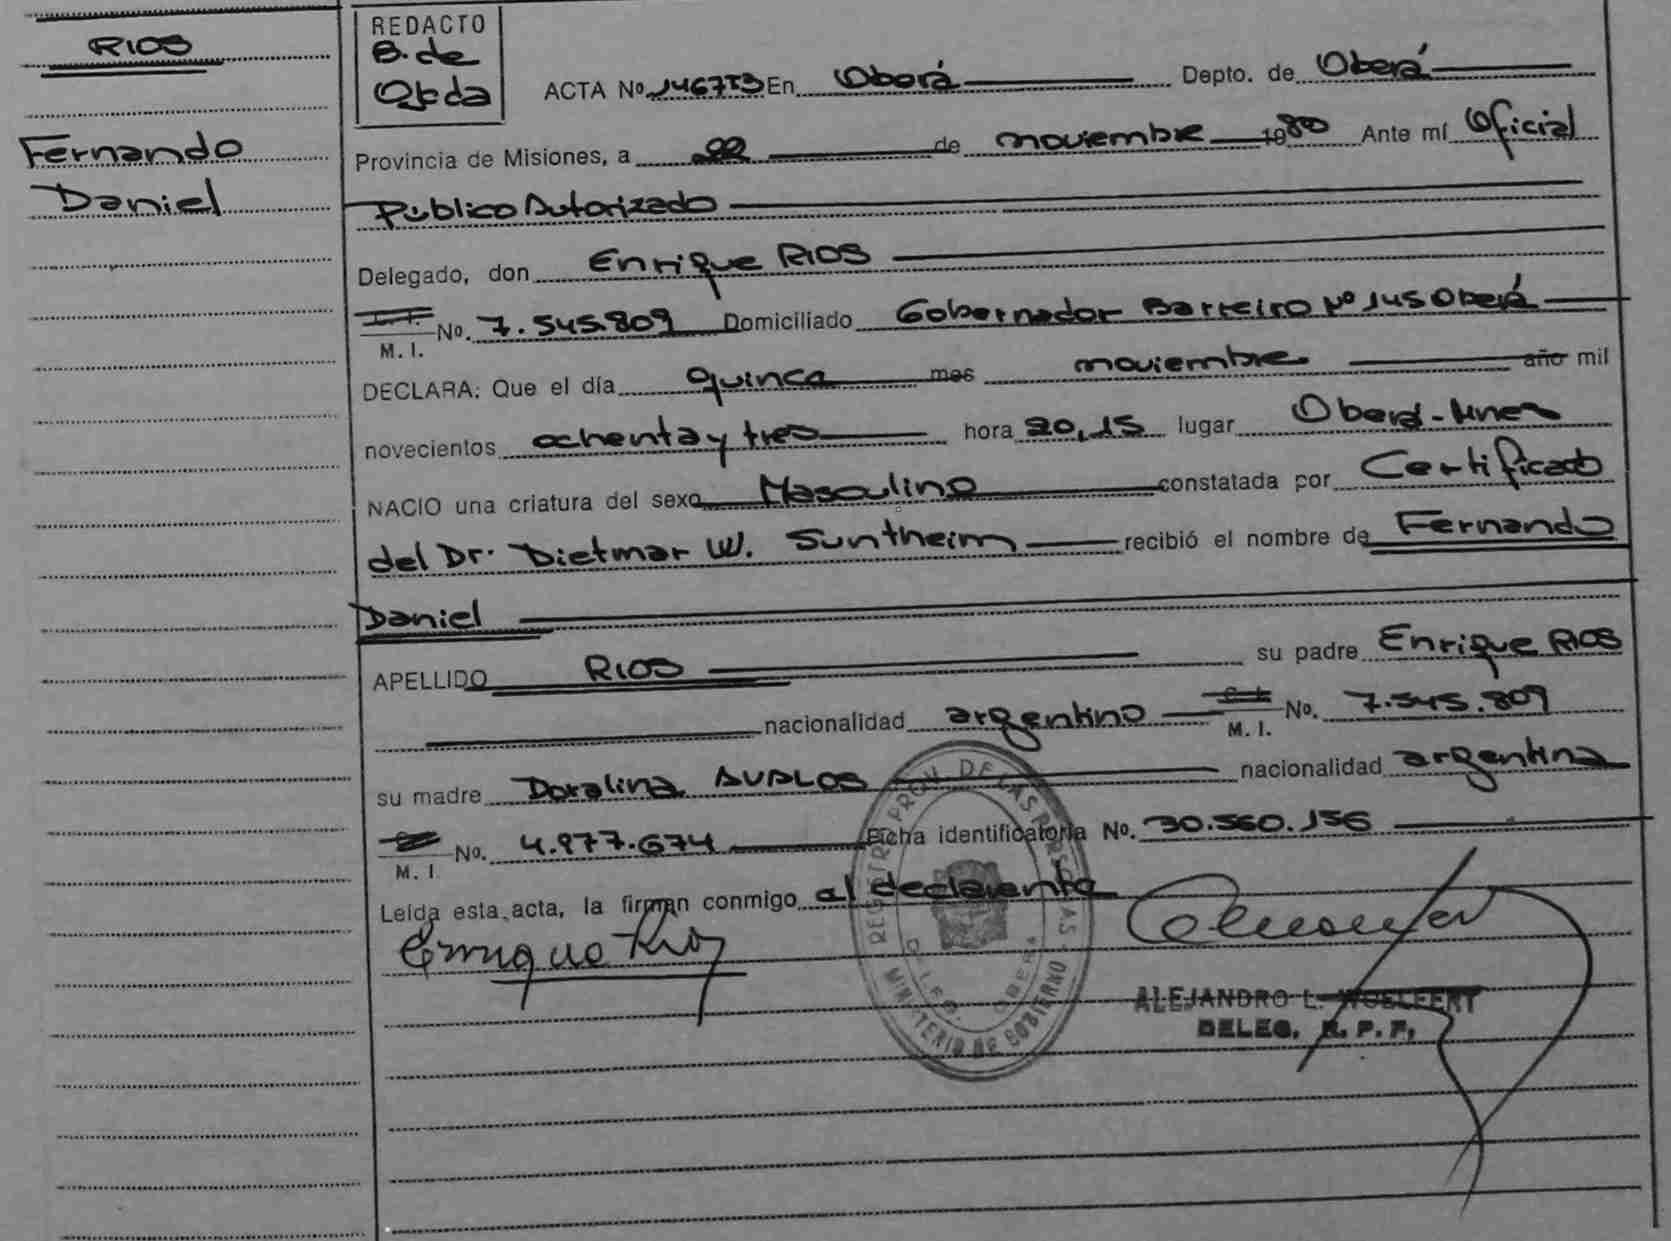 RIOS
Fernando
Daniel
REDACTO
B. de
Ojeda
ACTA No. En Oberá Depto. de Oberá
Provincia de Misiones, a 22 de noviembre 1980 Ante mí Oficial
Público Autorizado
Delegado, don Enrique RIOS
M. I. No. 7.545.809 Domiciliado Gobernador Barreiro Nº 145 Oberá
DECLARA: Que el día quince mes noviembre año mil
novecientos ochenta y tres hora 20,15 lugar Oberá - Mnes
NACIO una criatura del sexo Masculino constatada por Certificado
del Dr. Dietmar W. Suntheim recibió el nombre de Fernando
Daniel
APELLIDO RIOS su padre Enrique RIOS
nacionalidad argentino M. I. No. 7.545.809
su madre Doralina AVALOS nacionalidad argentina
M. I No. 4.977.674 Ficha identificatoria No. 30.560.156
Leída esta acta, la firman conmigo el declarante
Enrique Rios
REGISTRO PROV. DE LAS PERSONAS
DELEG. OBERA
MINISTERIO DE GOBIERNO
ALEJANDRO L. WOELFERT
DELEG. R. P. P.